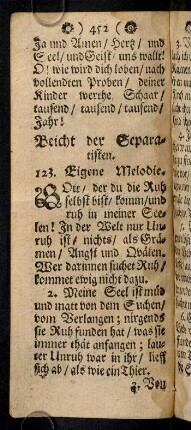 ) 452 (
Ja und Amen / Hertz / und
Seel / und Geist / uns wallt!
O! wie wird dich loben / nach
vollendten Proben / deiner
Kinder werthe Schaar /
tausend / tausend / tausend /
Jahr!
Beicht der Separa-
tisten.
123. Eigene Melodie.
GOtt / der du die Ruh
selbst bist / komm / und
ruh in meiner See-
len! In der Welt nur Un-
ruh ist / nichts / als Grä-
men / Angst und Qvälen.
Wer darinnen sucht Ruh /
kommet ewig nicht dazu.
2. Meine Seel ist müd
und matt von dem Suchen /
vom Verlangen; nirgends
sie Ruh funden hat / was sie
immer thät anfangen; lau-
ter Unruh war in ihr / lieff
sich ab / als wie ein Thier.
3. Von